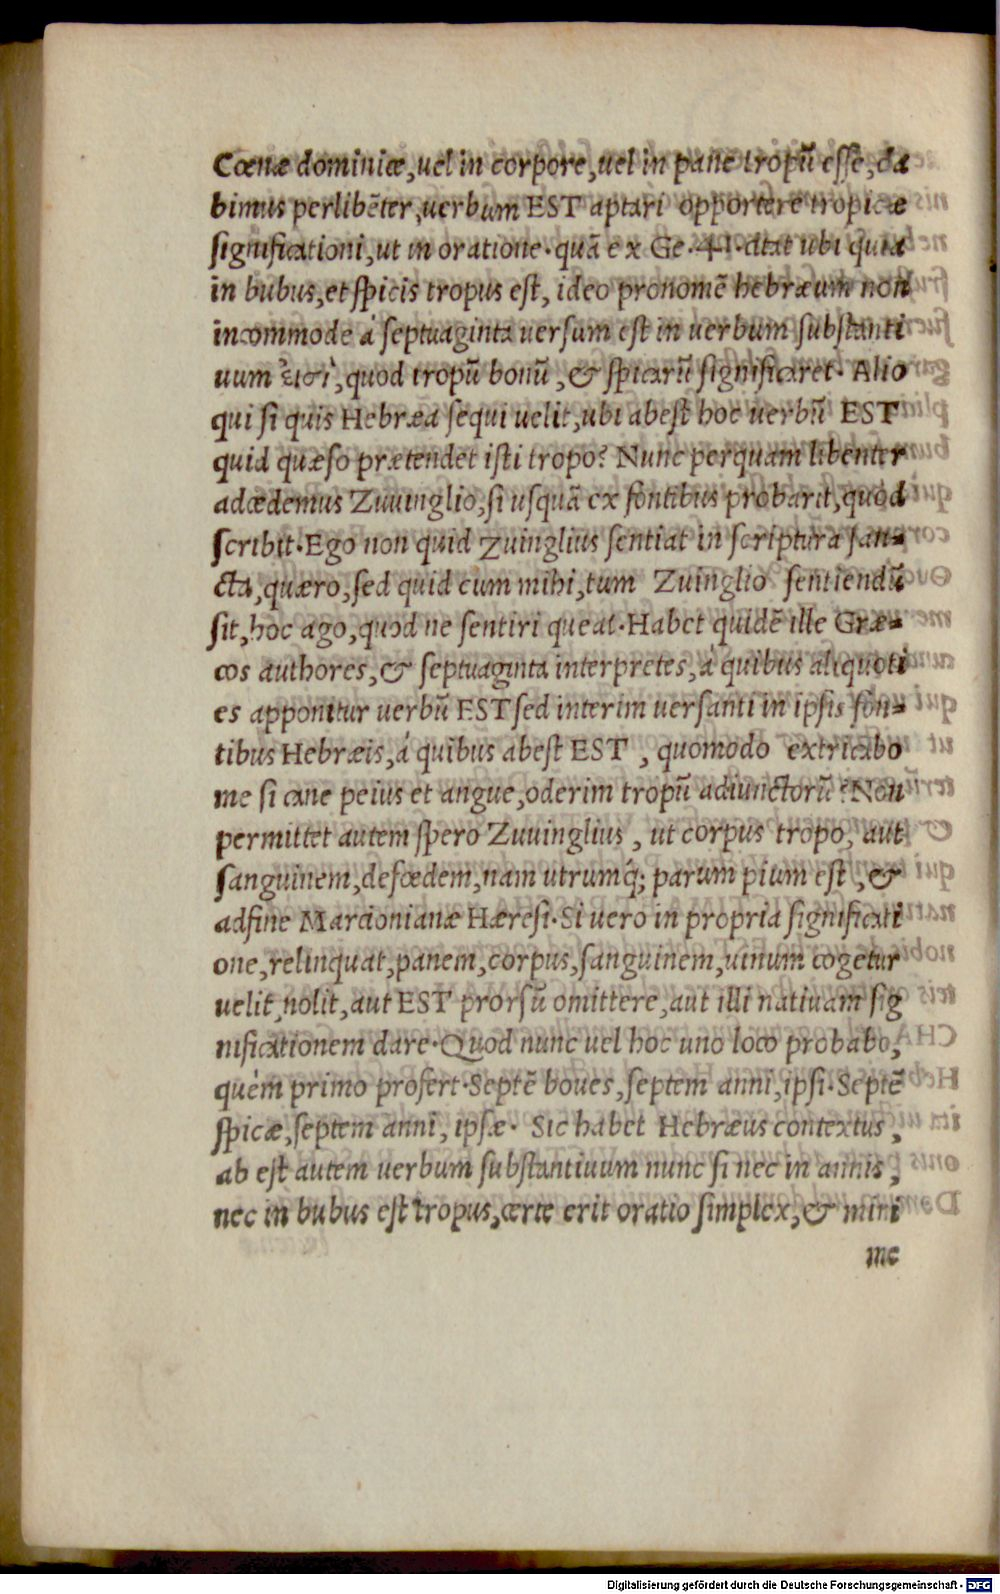 Cœnæ dominicæ,uel in corpore,uel in pane tropũ esse,da
bimus perlibẽter,uerbum EST aptari opportere tropicæ
significationi,ut in oratione·quã ex Ge·41·citat ubi quia
in bubus,et spicis tropus est, ideo pronomẽ hebræum non
incommode à septuaginta uersum est in uerbum substanti
uum ἐισὶ,quod tropũ bonũ,& spicarũ significaret· Alio
qui si quis Hebræa sequi uelit,ubi abest hoc uerbũ EST
quid quæso prætendet isti tropo? Nunc perquam libenter
adcedemus Zuuinglio,si usquã ex fontibus probarit,quod
scribit·Ego non quid Zuinglius sentiat in scriptura san=
cta,quæro,sed quid cum mihi,tum Zuinglio sentiendũ
sit,hoc ago,quod ne sentiri queat·Habet quidẽ ille Græ=
cos authores,& septuaginta interpretes,à quibus aliquoti
es apponitur uerbũ EST sed interim uersanti in ipsis fon=
tibus Hebræis,á quibus abest EST, quomodo extricabo
me si cane peius et angue,oderim tropũ adiunctorũ? Non
permittet autem spero Zuuinglius, ut corpus tropo, aut
sanguinem,defœdem,nam utrumq́; parum pium est,&
adfine Marcionianæ Hæresi·Si uero in propria significati
one,relinquat,panem,corpus,sanguinem,uinum cogetur
uelit,nolit,aut EST prorsũ omittere,aut illi natiuam sig
nificationem dare·Quod nunc uel hoc uno loco probabo,
quèm primo profert·Septẽ boues,septem anni,ipsi·Septẽ
spicæ,septem anni, ipsæ· Sic habet Hebræus contextus,
ab est autem uerbum substantiuum nunc si nec in annis,
nec in bubus est tropus,certe erit oratio simplex,& mini
me
Digitalisierung gefördert durch die Deutsche Forschungsgemeinschaft - DFG